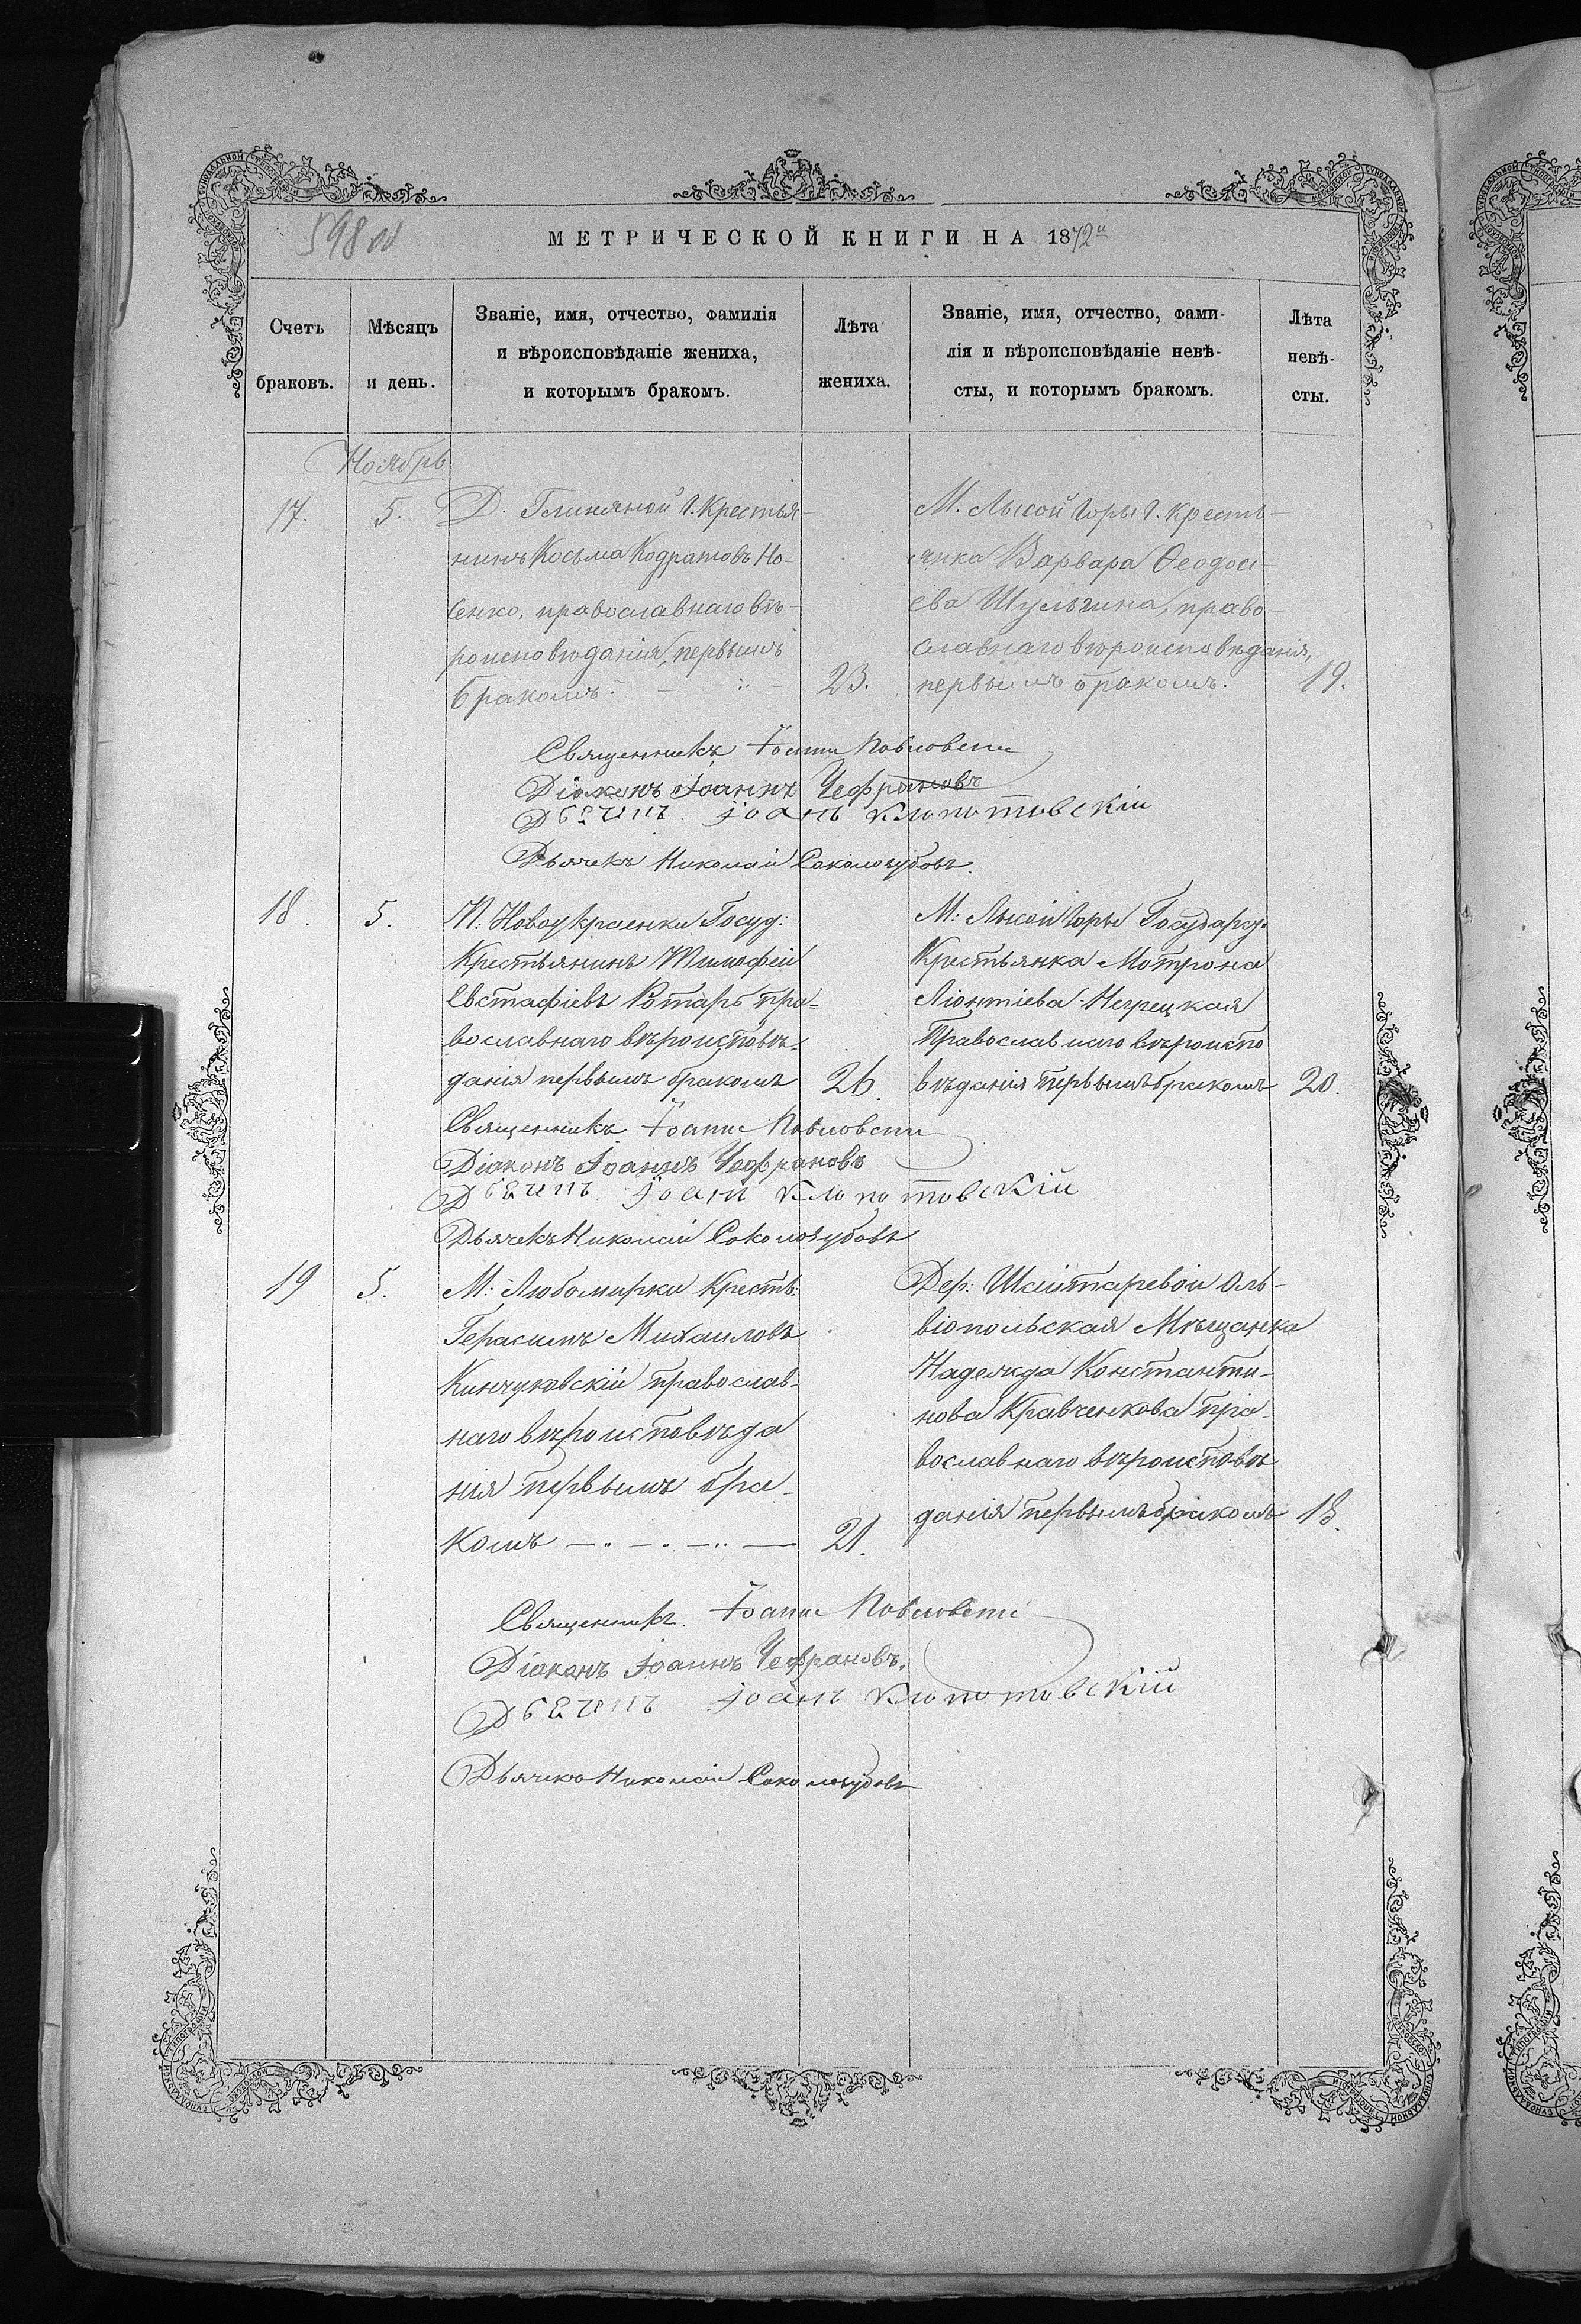 598 об
МЕТРИЧЕСКОЙ КНИГИ НА 1872й
Счетъ браковъ.
Мѣсяцъ и день.
Званіе, имя, отчество, фамилія
и вѣроисповѣданіе жениха,
и которымъ бракомъ.
Лѣта жениха.
Званіе, имя, отчество, фами-
лія и вѣроисповѣданіе невѣ-
сты, и которымъ бракомъ.
Лѣта невѣ-
сты.
Ноябрь
17. 5.
Д. Глиняной Г. Крестья-
нинъ Косьма Кодратовъ Но-
сенко, православнаго вѣ-
роисповѣданія, первымъ
бракомъ. 23.
М. Лысой Горы Г. Кресть-
янка Варвара Ѳеодосі-
ева Шульгина, право-
славнаго вѣроисповѣданія,
первымъ бракомъ. 19.
Священникъ Іоаннъ
Діаконъ Іоаннъ Чефрановъ
Іоанъ Клопотовскій
Дьячекъ Николай Сокологубовъ.
18. 5.
П: Новоукраенки Госуд:
Крестьянинъ Тимофей
Евстафіевъ Ротарь пра-
вославнаго вѣроисповѣ-
данія первымъ бракомъ 26.
М: Лысой Горы Государ.
Крестьянка Мотрона
Ліонтіева Негрецкая
Православнаго вѣроиспо
вѣданія первымъ бракомъ 20.
Священникъ Іоаннъ
Діаконъ Іоаннъ Чефрановъ
Іоанъ Клопотовскій
Дьячекъ Николай Сокологубовъ
19 5.
М: Любомирки Кресть:
Герасимъ Михаиловъ
Кинчуковскій православ-
наго вѣроисповѣда
нія первымъ бра-
комъ 21.
Дер: Шайтаревой Оль-
віопольская Мѣщанка
Надежда Константи-
нова Кравченкова пра-
вославнаго вѣроисповѣ
данія первымъ бракомъ 18.
Священникъ. Іоаннъ
Діаконъ Іоаннъ Чефрановъ.
Іоанъ Клопотовскій
Дьячекъ Николай Сокологубовъ